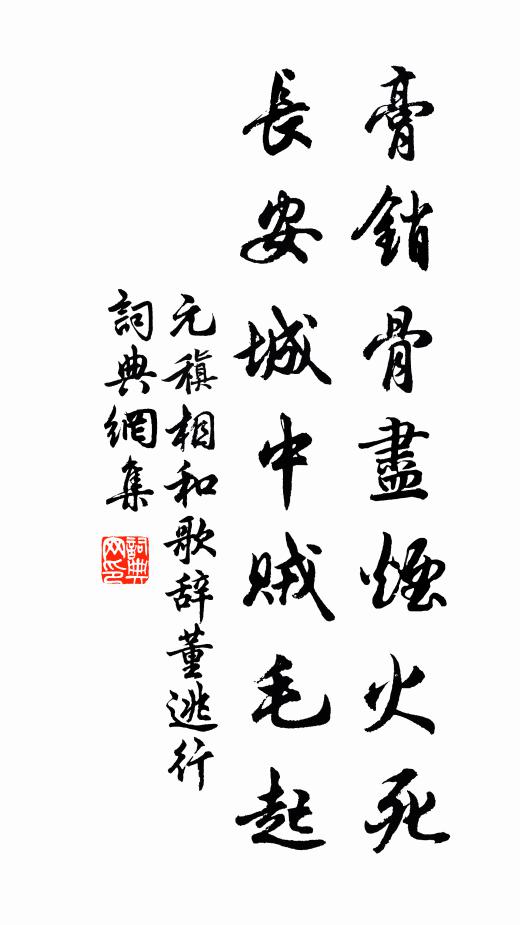 膏銷骨盡煙火死
長安城中賊毛起
元稹相和歌辞董逃行
詞典網集
詞典网印